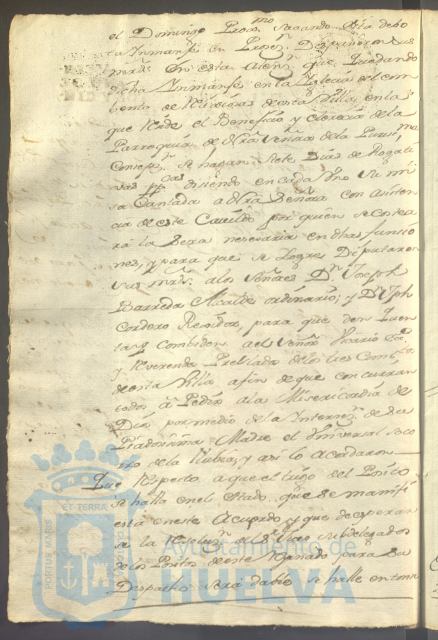 el Domingo Proxmo sacando a la devo
ta Ymanjn en Prosesn Dispusieron sus
mrds en esta atenn que quedando
dcha Ymanjen en la Yglecia del com
bento de Relixiosas de esta Villa, en la
que Recide el Beneficio y Cleresia de la
Parroquia de Nra Señora de la Purisma
Concepn se hagan siete Dias de Rogati
vas pcas disiendo en cada Uno su mi
sa Cantada a Nra Señora con asisten
cia de este Cavildo por quien se costea
ra la Sera nesesaria en dhas funsio
nes, y para que se Logre Diputaron
sus mrds a los Señores Dn Joseph
Barreda Alcalde ordinario, y Dn Jph
Cordero Rexidor, para que den quen
ta y Combiden al Señor Vicario
y Reverenda Prelada de los tres Comtos
de esta Villa a fin de que concurran
todos a Pedir a la Misericordia de
Dios por medio de la Intersesn de su
Piadosisima Madre el Universal soco
rro de la Llubia, y asi lo acordaron
Que Respecto a que el trigo del Posito
se halla en el estado, que se manifi
esta en este Acuerdo, y que de esperar
se la Resoluzn al Sr Juez subdelegado
de los Positos de este Reynado para su
Despacho sera dable se halle en tonse
ET TERRÆ
PORTUS MARIS
Ayuntamiento de
HUELVA